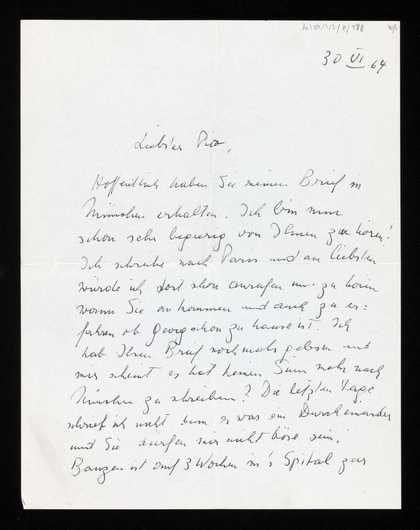 30 VI 64
Liebster Pia,
Hoffentlich haben Sie meinen Brief in
München erhalten. Ich bin nun
schon sehr begierig von Ihnen zu hören!
Ich schreibe nach Paris und am liebsten
würde ich dort schon anrufen um zu hören
wann Sie ankommen und auch zu er=
fahren ob Georg schon zu hause ist. Ich
hab Ihren Brief nochmals gelesen und
mir scheint es hat keinen Sinn mehr nach
München zu schreiben? Die letzten Tage
schrieb ich nicht denn es war ein Durcheinander
und Sie dürfen mir nicht böse sein!
ist auf 3 Wochen in's Spital zur